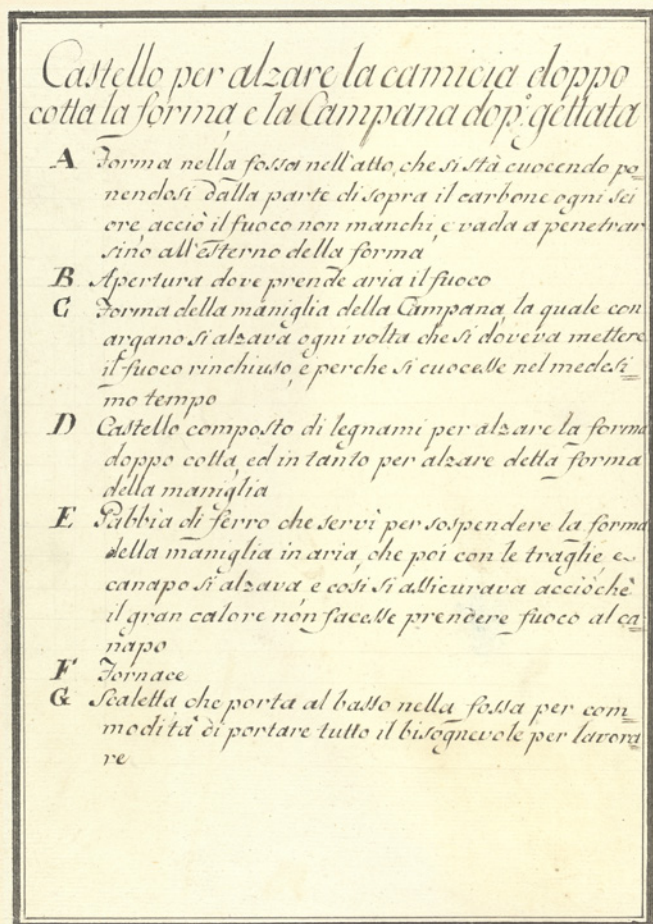 Castello per alzare la camicia doppo
cotta la forma, e la Campana dop.º gettata
A Forma nella fossa nell'atto, che si stà cuocendo po=
nendosi dalla parte di sopra il carbone ogni sei
ore, acciò il fuoco non manchi, e vada a penetrar
sino all'esterno della forma
B Apertura dove prende aria il fuoco
C Forma della maniglia della Campana, la quale con
argano si alzava ogni volta che si doveva mettere
il fuoco rinchiuso, e perche si cuocesse nel medesi=
mo tempo
D Castello composto di legnami per alzare la forma
doppo cotta, ed in tanto per alzare detta forma
della maniglia
E Gabbia di ferro che servì per sospendere la forma
della maniglia in aria, che poi con le traglie, e
canapo si alzava, e così si assicurava acciòchè
il gran calore non facesse prendere fuoco al ca=
napo
F Fornace
G Scaletta, che porta al basso nella fossa per com=
modità di portare tutto il bisognevole per lavora=
re